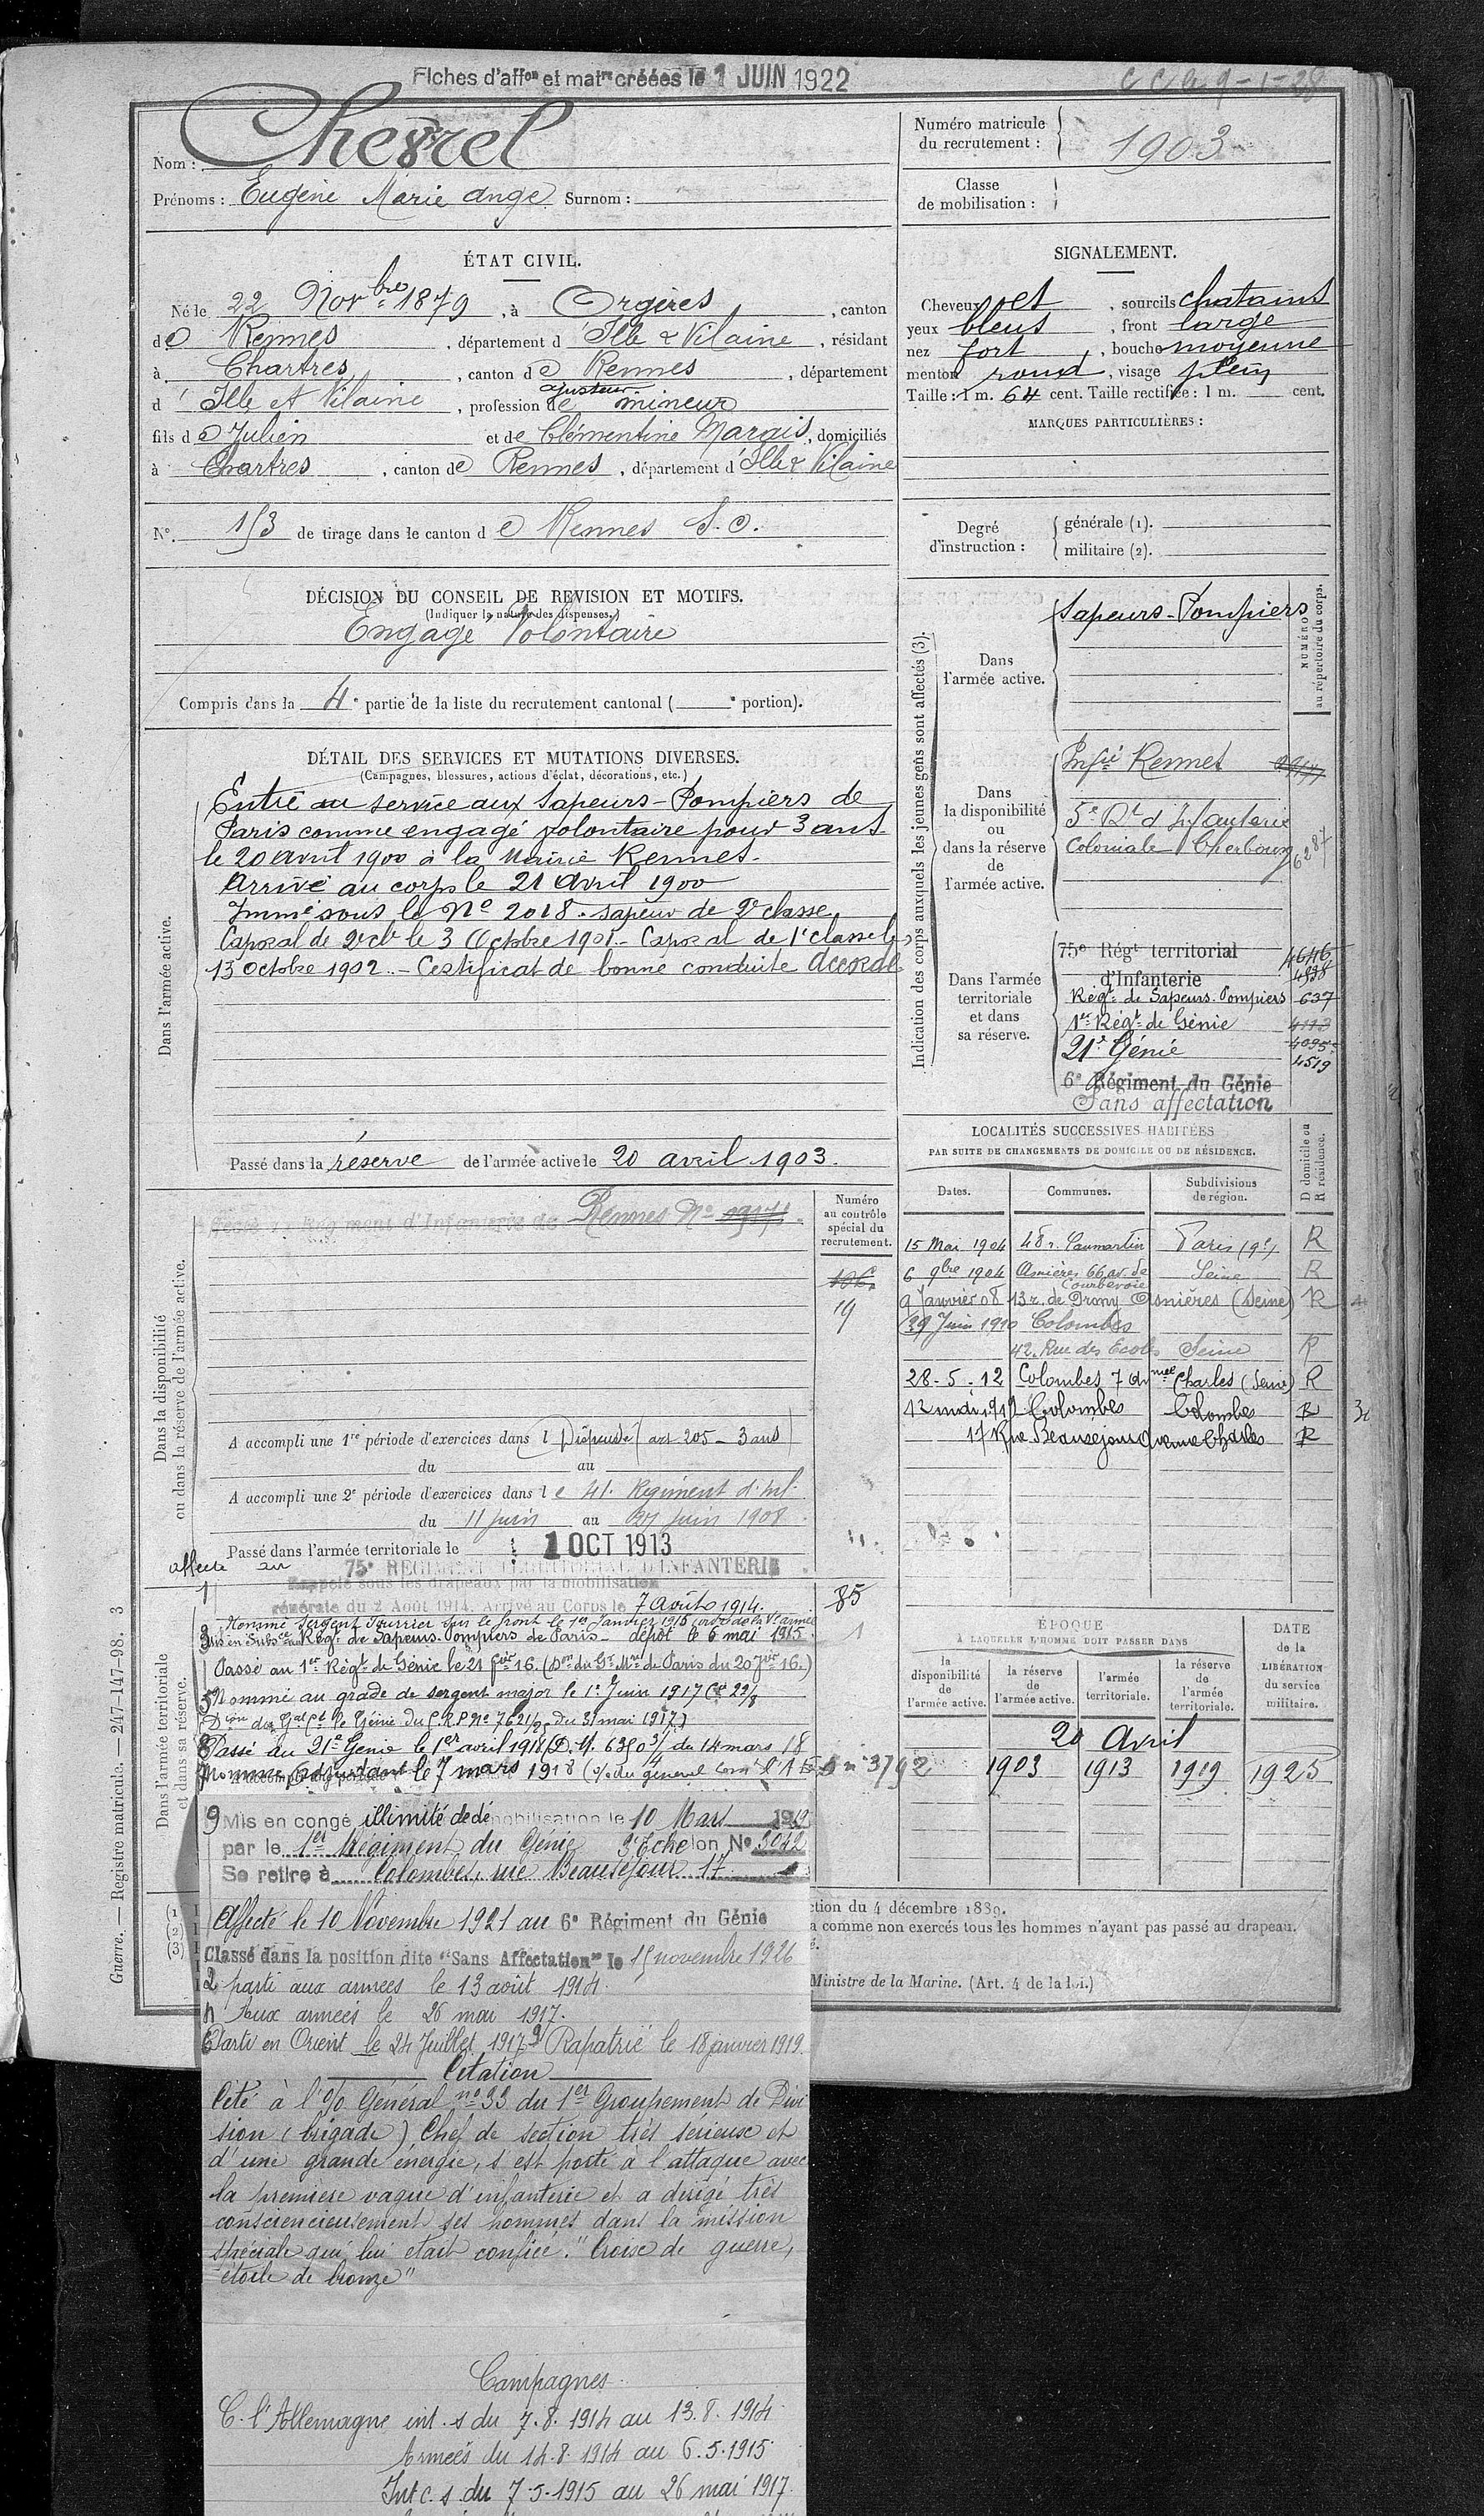 Fiches d'affon et matre créées le 1 JUIN 1922
C C le 9-1-28
Nom : Chevrel
Prénoms : Eugène Marie Ange Surnom :
Numéro matricule du recrutement : 1903
Classe de mobilisation :
ÉTAT CIVIL.
Né le 22 Novbre 1879, à Orgères, canton
de Rennes, département d'Ille & Vilaine, résidant
à Chartres, canton de Rennes, département
d'Ille et Vilaine, profession de ajusteur mineur
fils de Julien et de Clémentine Marais, domiciliés
à Chartres, canton de Rennes, département d'Ille & Vilaine
N° 153 de tirage dans le canton de Rennes S. O.
SIGNALEMENT.
Cheveux et, sourcils chatains
yeux bleus, front large
nez fort, bouche moyenne
menton rond, visage plein
Taille : 1 m. 64 cent. Taille rectifiée : 1 m. cent.
MARQUES PARTICULIÈRES :
Degré d'instruction :
générale (1).
militaire (2).
DÉCISION DU CONSEIL DE REVISION ET MOTIFS.
(Indiquer la nature des dispenses.)
Engagé Volontaire
Compris dans la 4e partie de la liste du recrutement cantonal ( e portion).
DÉTAIL DES SERVICES ET MUTATIONS DIVERSES.
(Campagnes, blessures, actions d'éclat, décorations, etc.)
Dans l'armée active.
Entré au service aux Sapeurs-Pompiers de
Paris comme engagé volontaire pour 3 ans
le 20 avril 1900 à la Mairie Rennes.
Arrivé au corps le 21 Avril 1900
Immé sous le N° 2018. sapeur de 2e classe
Caporal de 2e cl le 3 Octobre 1901 - Caporal de 1e classe le
13 Octobre 1902. - Certificat de bonne conduite Accordé
Passé dans la réserve de l'armée active le 20 avril 1903.
Indication des corps auxquels les jeunes gens sont affectés (3).
NUMÉRO au répertoire du corps.
Dans l'armée active.
Sapeurs-Pompiers
Dans la disponibilité ou dans la réserve de l'armée active.
Infie Rennes
5e Rt d'Infanterie
Coloniale Cherbourg 6287
Dans l'armée territoriale et dans sa réserve.
75e Régt territorial 4646
d'Infanterie 4938
Régt de Sapeurs-Pompiers 637
1er Régt de Génie 4113
21e Génie 4095
4519
6e Régiment du Génie
Sans affectation
LOCALITÉS SUCCESSIVES HABITÉES
PAR SUITE DE CHANGEMENTS DE DOMICILE OU DE RÉSIDENCE.
Dates. Communes. Subdivisions de région. D domicile ou R résidence.
15 Mai 1904 48 r. Caumartin Paris (9e) R
6 9bre 1904 Asnières 66 av. de Courbevoie Seine R
9 Janvier 08 13 r. de Prony Asnières (Seine) R
29 Juin 1910 Colombes
42. Rue des Ecoles Seine R
28-5-12 Colombes 7 Charles (Seine) R
12 mai 1912 Colombes Colombes R
17 Rue Beauséjour Avenue Charles R
Dans la disponibilité ou dans la réserve de l'armée active.
Affecté au Régiment d'Infanterie de Rennes N°
Numéro au contrôle spécial du recrutement.
106
19
A accompli une 1re période d'exercices dans l Dispensé (art 205 - 3 ans)
du au
A accompli une 2e période d'exercices dans le 41. Régiment d'Inf.
du 11 juin au juin 1908
Passé dans l'armée territoriale le 1 OCT 1913
affecté au 75e RÉGIMENT TERRITORIAL D'INFANTERIE
Dans l'armée territoriale et dans sa réserve.
1 Rappelé sous les drapeaux par la mobilisation
générale du 2 Août 1914. Arrivé au Corps le 7 Août 1914. 85
Nommé Sergent Fourrier sur le front le 1er Janvier 1915
3 Mis en Subsce au Régt de Sapeurs-Pompiers de Paris - dépôt le 6 mai 1915. 1
Passé au 1er Régt de Génie le 21 16. (Don du Gt Mre de Paris du 20 16.)
5 Nommé au grade de sergent major le 1er Juin 1917
Don du Gal Ct le Génie du C.R.P. N° du 31 mai 1917)
Passé au 21e Génie le 1er avril 1918 (D.M. du 14 mars 18
Nommé adjudant le 7 mars 1918 n° 3792
9 Mis en congé illimité de démobilisation le 10 Mars 1919
par le 1er Régiment du Génie 3e Echelon N° 3042
Se retire à Colombes, rue Beauséjour 17.
Affecté le 10 Novembre 1921 au 6e Régiment du Génie
Classé dans la position dite "Sans Affectation" le 15 novembre 1926
2 parti aux armées le 13 août 1914.
4 Aux armées le 26 mai 1917.
6 Parti en Orient le 24 Juillet 1917 Rapatrié le 18 janvier 1919.
Citation
Cité à l'o/o Général n° 33 du 1er Groupement de Divi
sion (brigade) Chef de section très sérieux et
d'une grande énergie, s'est porté à l'attaque avec
la première vague d'infanterie et a dirigé très
consciencieusement ses hommes dans la mission
spéciale qui lui était confiée. "Croix de guerre,
étoile de bronze"
Campagnes.
C. l'Allemagne int. s du 7.8.1914 au 13.8.1914
Armées du 14.8.1914 au 6.5.1915
Int c. s. du 7-5-1915 au 26 mai 1917.
ÉPOQUE
À LAQUELLE L'HOMME DOIT PASSER DANS
la disponibilité de l'armée active.
la réserve de l'armée active.
l'armée territoriale.
la réserve de l'armée territoriale.
DATE de la LIBÉRATION du service militaire.
20 Avril
1903 1913 1919 1925
ction du 4 décembre 1889.
a comme non exercés tous les hommes n'ayant pas passé au drapeau.
Ministre de la Marine. (Art. 4 de la loi.)
(1)
(2)
(3)
Guerre. — Registre matricule. — 247-147-98. 3